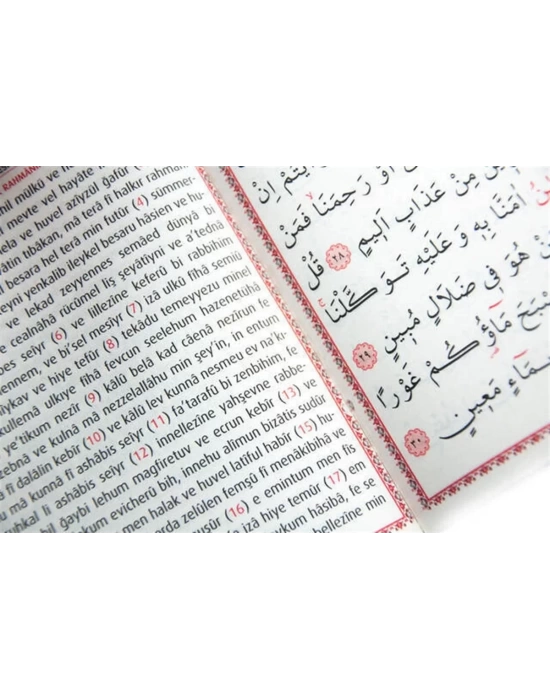 RAHMANI
mil mülkü ve h
l meyte vel hayâte
ela ve huvel azîyzül ğafûr (
âtin tıbâkan, mâ terâ fî halkır rahmân
l besara hel terâ min futûr (4) sümmer-
eyni yenkalib ileykel besaru hâsien ve hu-
ve lekad zeyyennes semâed dünyâ bi
e cealnâhâ rücûmel liş şeyâtîyni ve a'tednâ
bes seîyr (6) ve lillezîne keferû bi rabbihim
ennem, ve bi'sel mesîyr (7) izâ ülkû fîhâ semiû
îykav ve hiye tefûr (8) tekâdu temeyyezu minel
kullemâ ulkıye fîhâ fevcun seelehum hazenetühâ
e'tikum nezîr (9) kâlû belâ kad câenâ nezîrun fe
zebnâ ve kulnâ mâ nezzelallâhu min şey'in, in entum
â fî dalâlin kebîr (10) ve kâlû lev kunnâ nesmeu ev na'k-
u mâ kunnâ fî ashâbis seîyr (11) fa'terafû bi zenbihim, fe
uhkal li ashâbis seîyr (12) innellezîne yahşevne rabbe-
bil ğaybi lehum mağfiretuv ve ecrun kebîr (13) ve
kum evicherû bih, innehu alîmun bizâtis sudûr
men halak ve huvel latîful habîr (15) hu-
arda zelûlen femşû fî menâkibihâ ve
nuşûr (16) e emintum men fis
e izâ hiye temûr (17) em
aykum hâsibâ, fe se
bellezîne min
اَوْ رَحِمَنَا فَمَنْ
مِنْ عَذَابٍ اَلِيمٍ ٢٨ قُلْ
اٰمَنَّا بِهٖ وَعَلَيْهِ تَوَكَّلْنَا
هُوَ فِى ضَلَالٍ مُبِينٍ ٢٩
مَاؤُكُمْ غَوْرًا
مَعِينٍ ٣٠